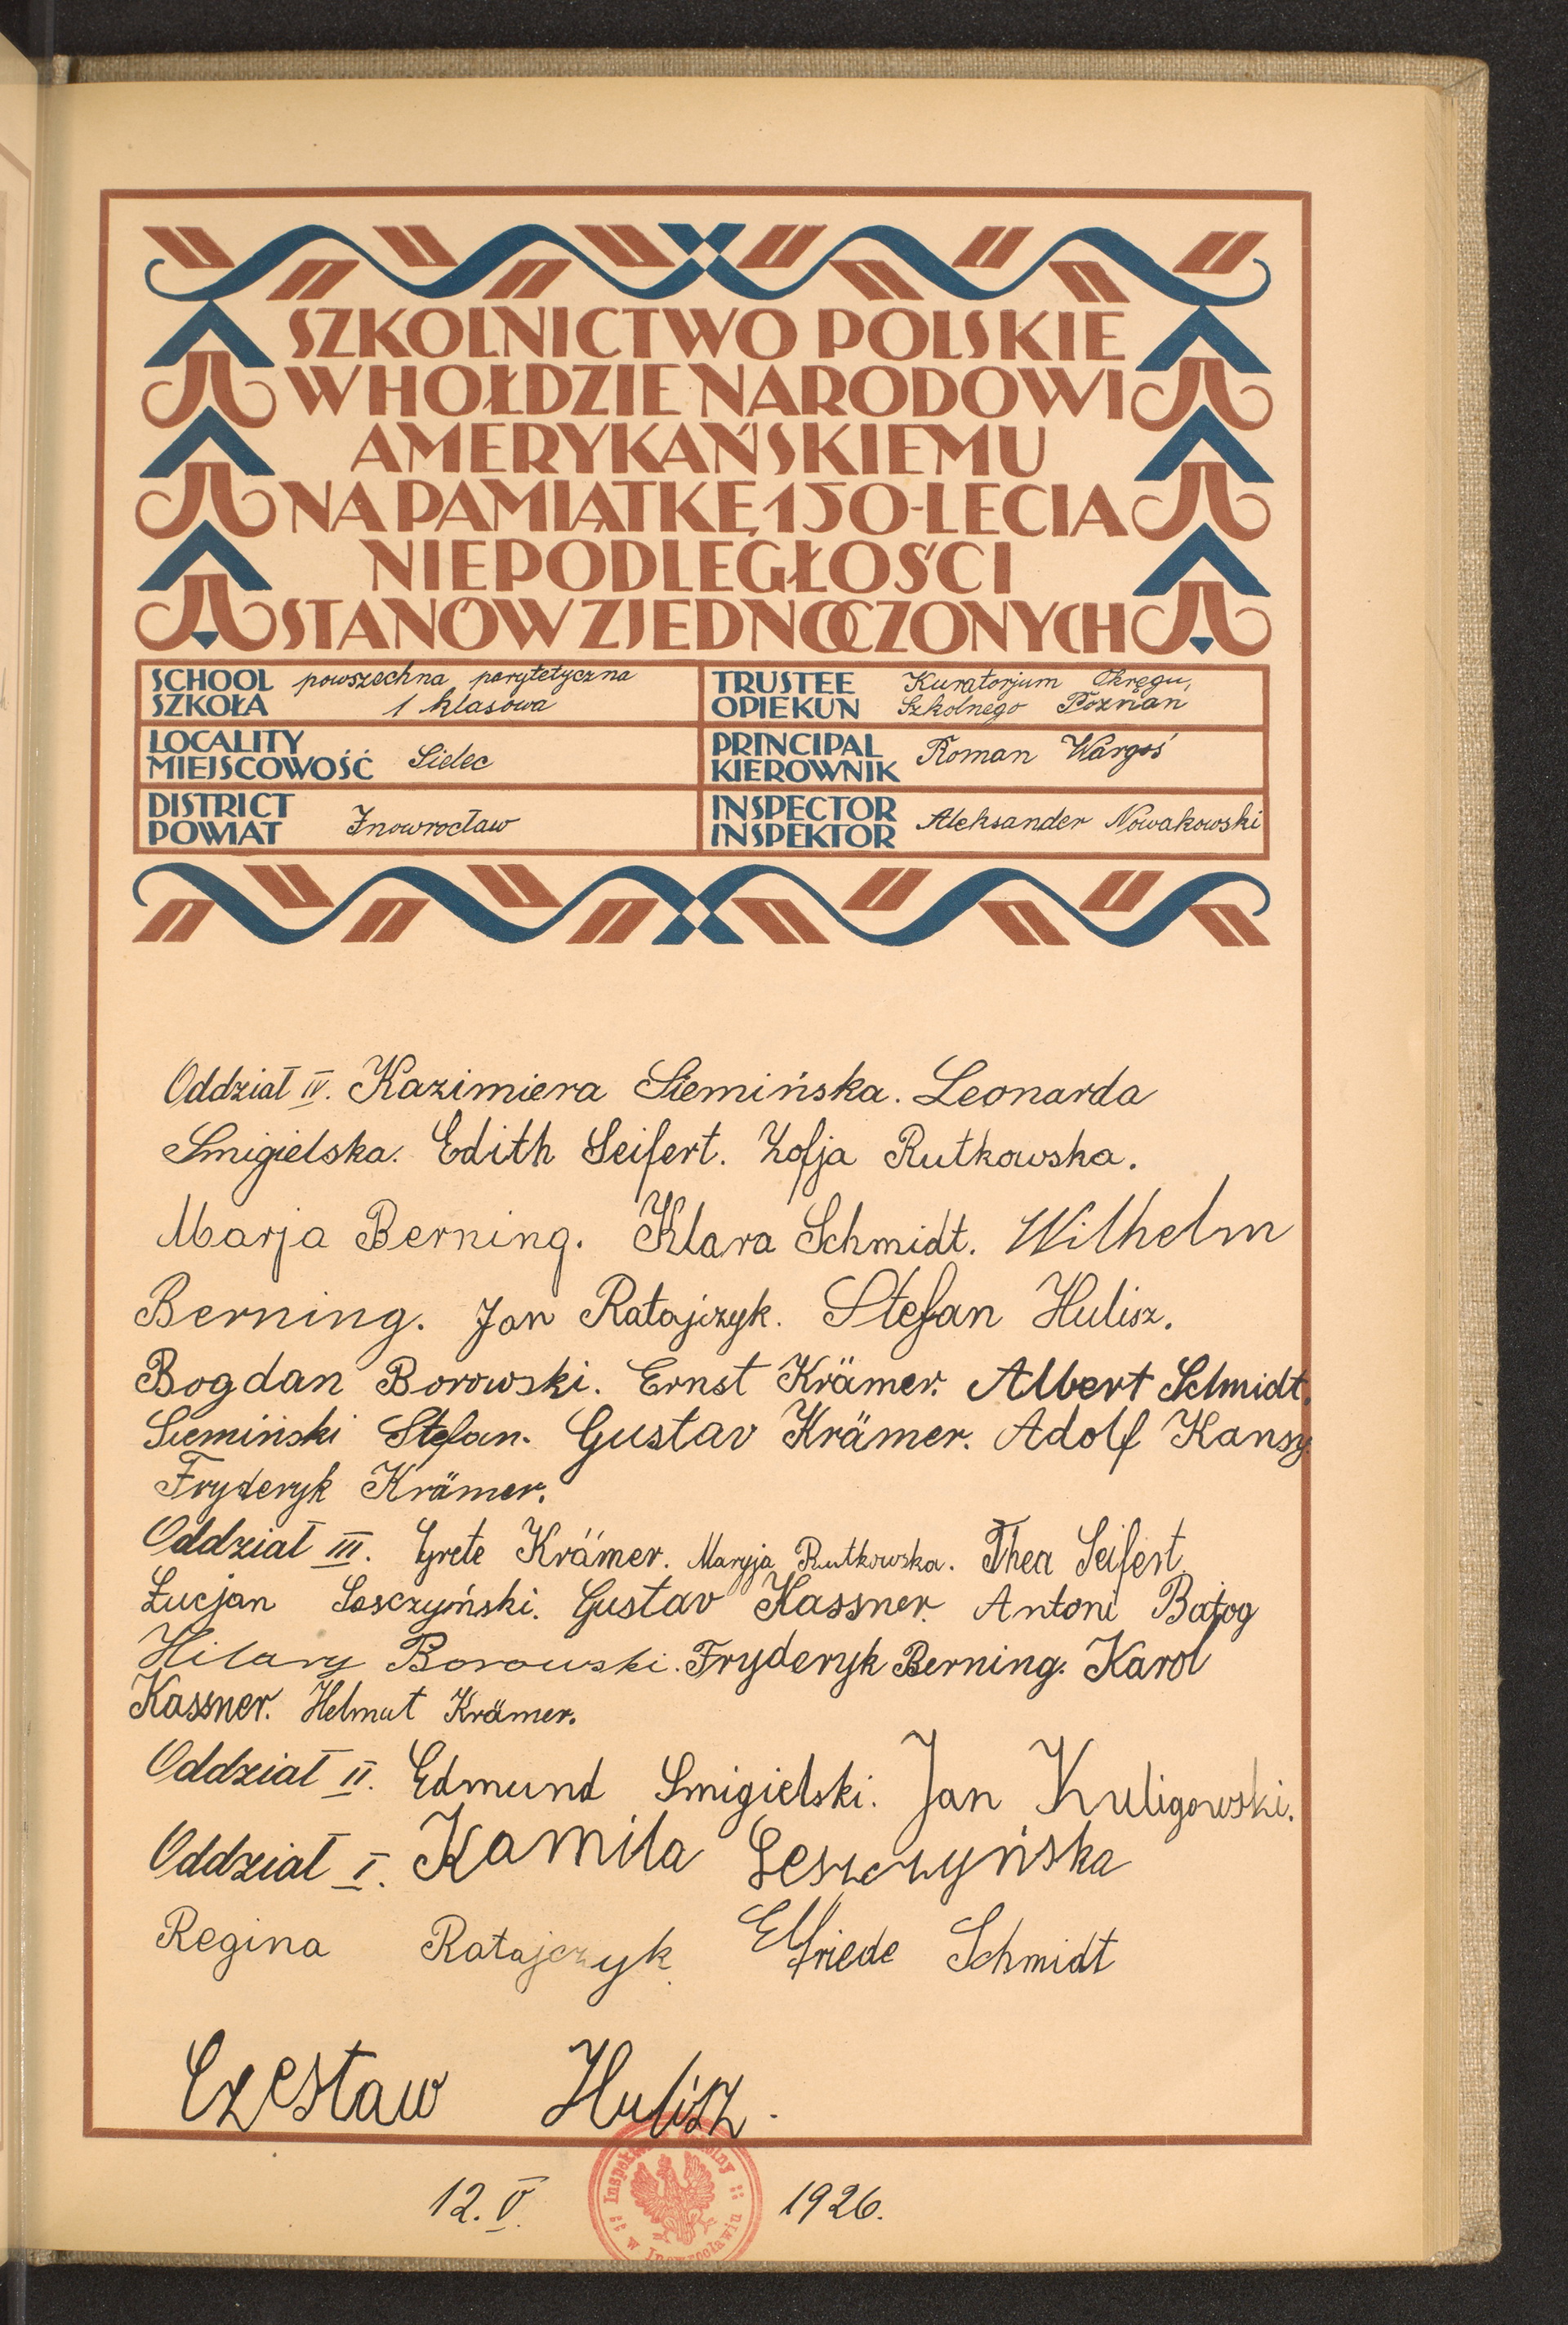 SZKOLNICTWO POLSKIE
W HOŁDZIE NARODOWI
AMERYKAŃSKIEMU
NA PAMIĄTKĘ 150-LECIA
NIEPODLEGŁOŚCI
STANÓW ZJEDNOCZONYCH
SCHOOL powszechna parytetyczna
SZKOŁA 1 klasowa
TRUSTEE Kuratorjum Okręgu,
OPIEKUN Szkolnego Poznań
LOCALITY
MIEJSCOWOŚĆ Sielec
PRINCIPAL
KIEROWNIK Roman Wargoś
DISTRICT
POWIAT Inowrocław
INSPECTOR
INSPEKTOR Aleksander Nowakowski
Oddział IV. Kazimiera Siemińska. Leonarda
Smigielska. Edith Seifert. Zofja Rutkowska.
Marja Berning. Klara Schmidt. Wilhelm
Berning. Jan Ratajczyk. Stefan Hulisz.
Bogdan Borowski. Ernst Krämer. Albert Schmidt.
Siemiński Stefan. Gustav Krämer. Adolf Kansy
Fryderyk Krämer.
Oddział III. Grete Krämer. Maryja Rutkowska. Thea Seifert
Łucjan Gustav Kassner. Antoni Batog
Hilary Borowski. Fryderyk Berning. Karol
Kassner. Helmut Krämer.
Oddział II. Edmund Smigielski. Jan Kuligowski.
Oddział I. Kamila Leszczyńska
Regina Ratajczyk Elfriede Schmidt
Czesław Hulisz.
12. V. 1926.
w Inowrocławiu